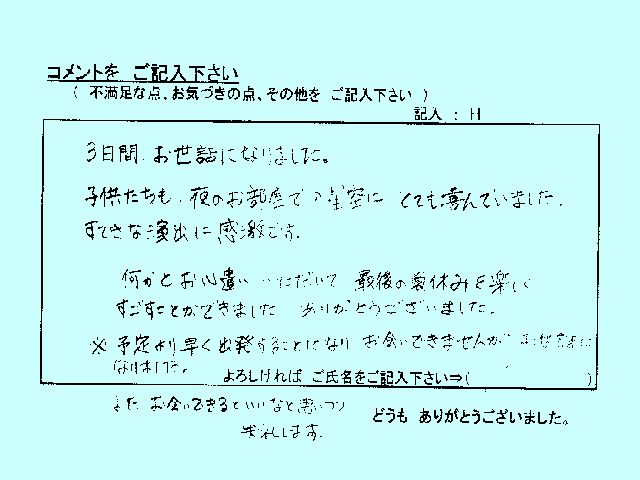 コメントを ご記入下さい
( 不満足な点、お気づきの点、その他を ご記入下さい )
記入 : H
3日間、お世話になりました。
子供たちも、夜のお部屋での星空に とても喜んでいました。
すてきな演出に感激です。
何かとお心遣いいただいて 最後の夏休みを楽しく
すごすことができました ありがとうございました。
※ 予定より早く出発することになり お会いできませんが
なりました。
よろしければ ご氏名をご記入下さい⇒( )
また お会いできるといいなと思いつつ
失礼します。
どうも ありがとうございました。